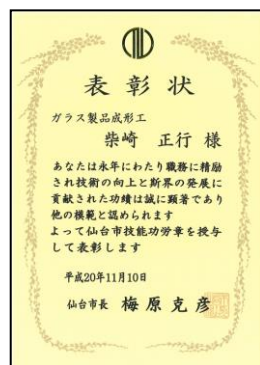 表彰状
ガラス製品成形工
柴崎 正行 様
あなたは永年にわたり職務に精励
され技術の向上と斯界の発展に
貢献された功績は誠に顕著であり
他の模範と認められます
よって仙台市技能功労章を授与
して表彰します
平成20年11月10日
仙台市長 梅原克彦